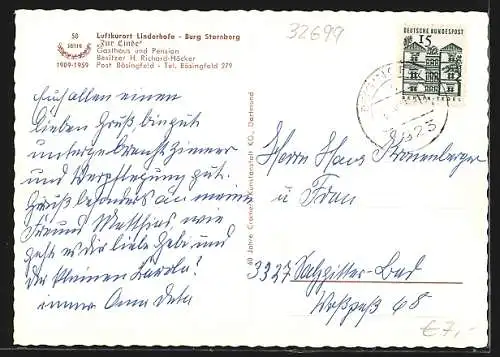 50
JAHRE
1909-1959
Luftkurort Linderhofe - Burg Sternberg
"Zur Linde"
Gasthaus und Pension
Besitzer H. Richard-Höcker
Post Bösingfeld - Tel. Bösingfeld 279
32699
DEUTSCHE BUNDESPOST
15
4925
Euch allen einen
lieben Gruß, bin gut
untergebracht Zimmer
und Verpflegung gut.
Gruß besonders an meinen
Freund Matthias, wie
geht es dir liebe und
der kleinen Carola?
immer
60 Jahre Cramers Kunstanstalt KG., Dortmund
Herrn Hans Kronenberger
u Frau
3327 Salzgitter-Bad
68
€7,-